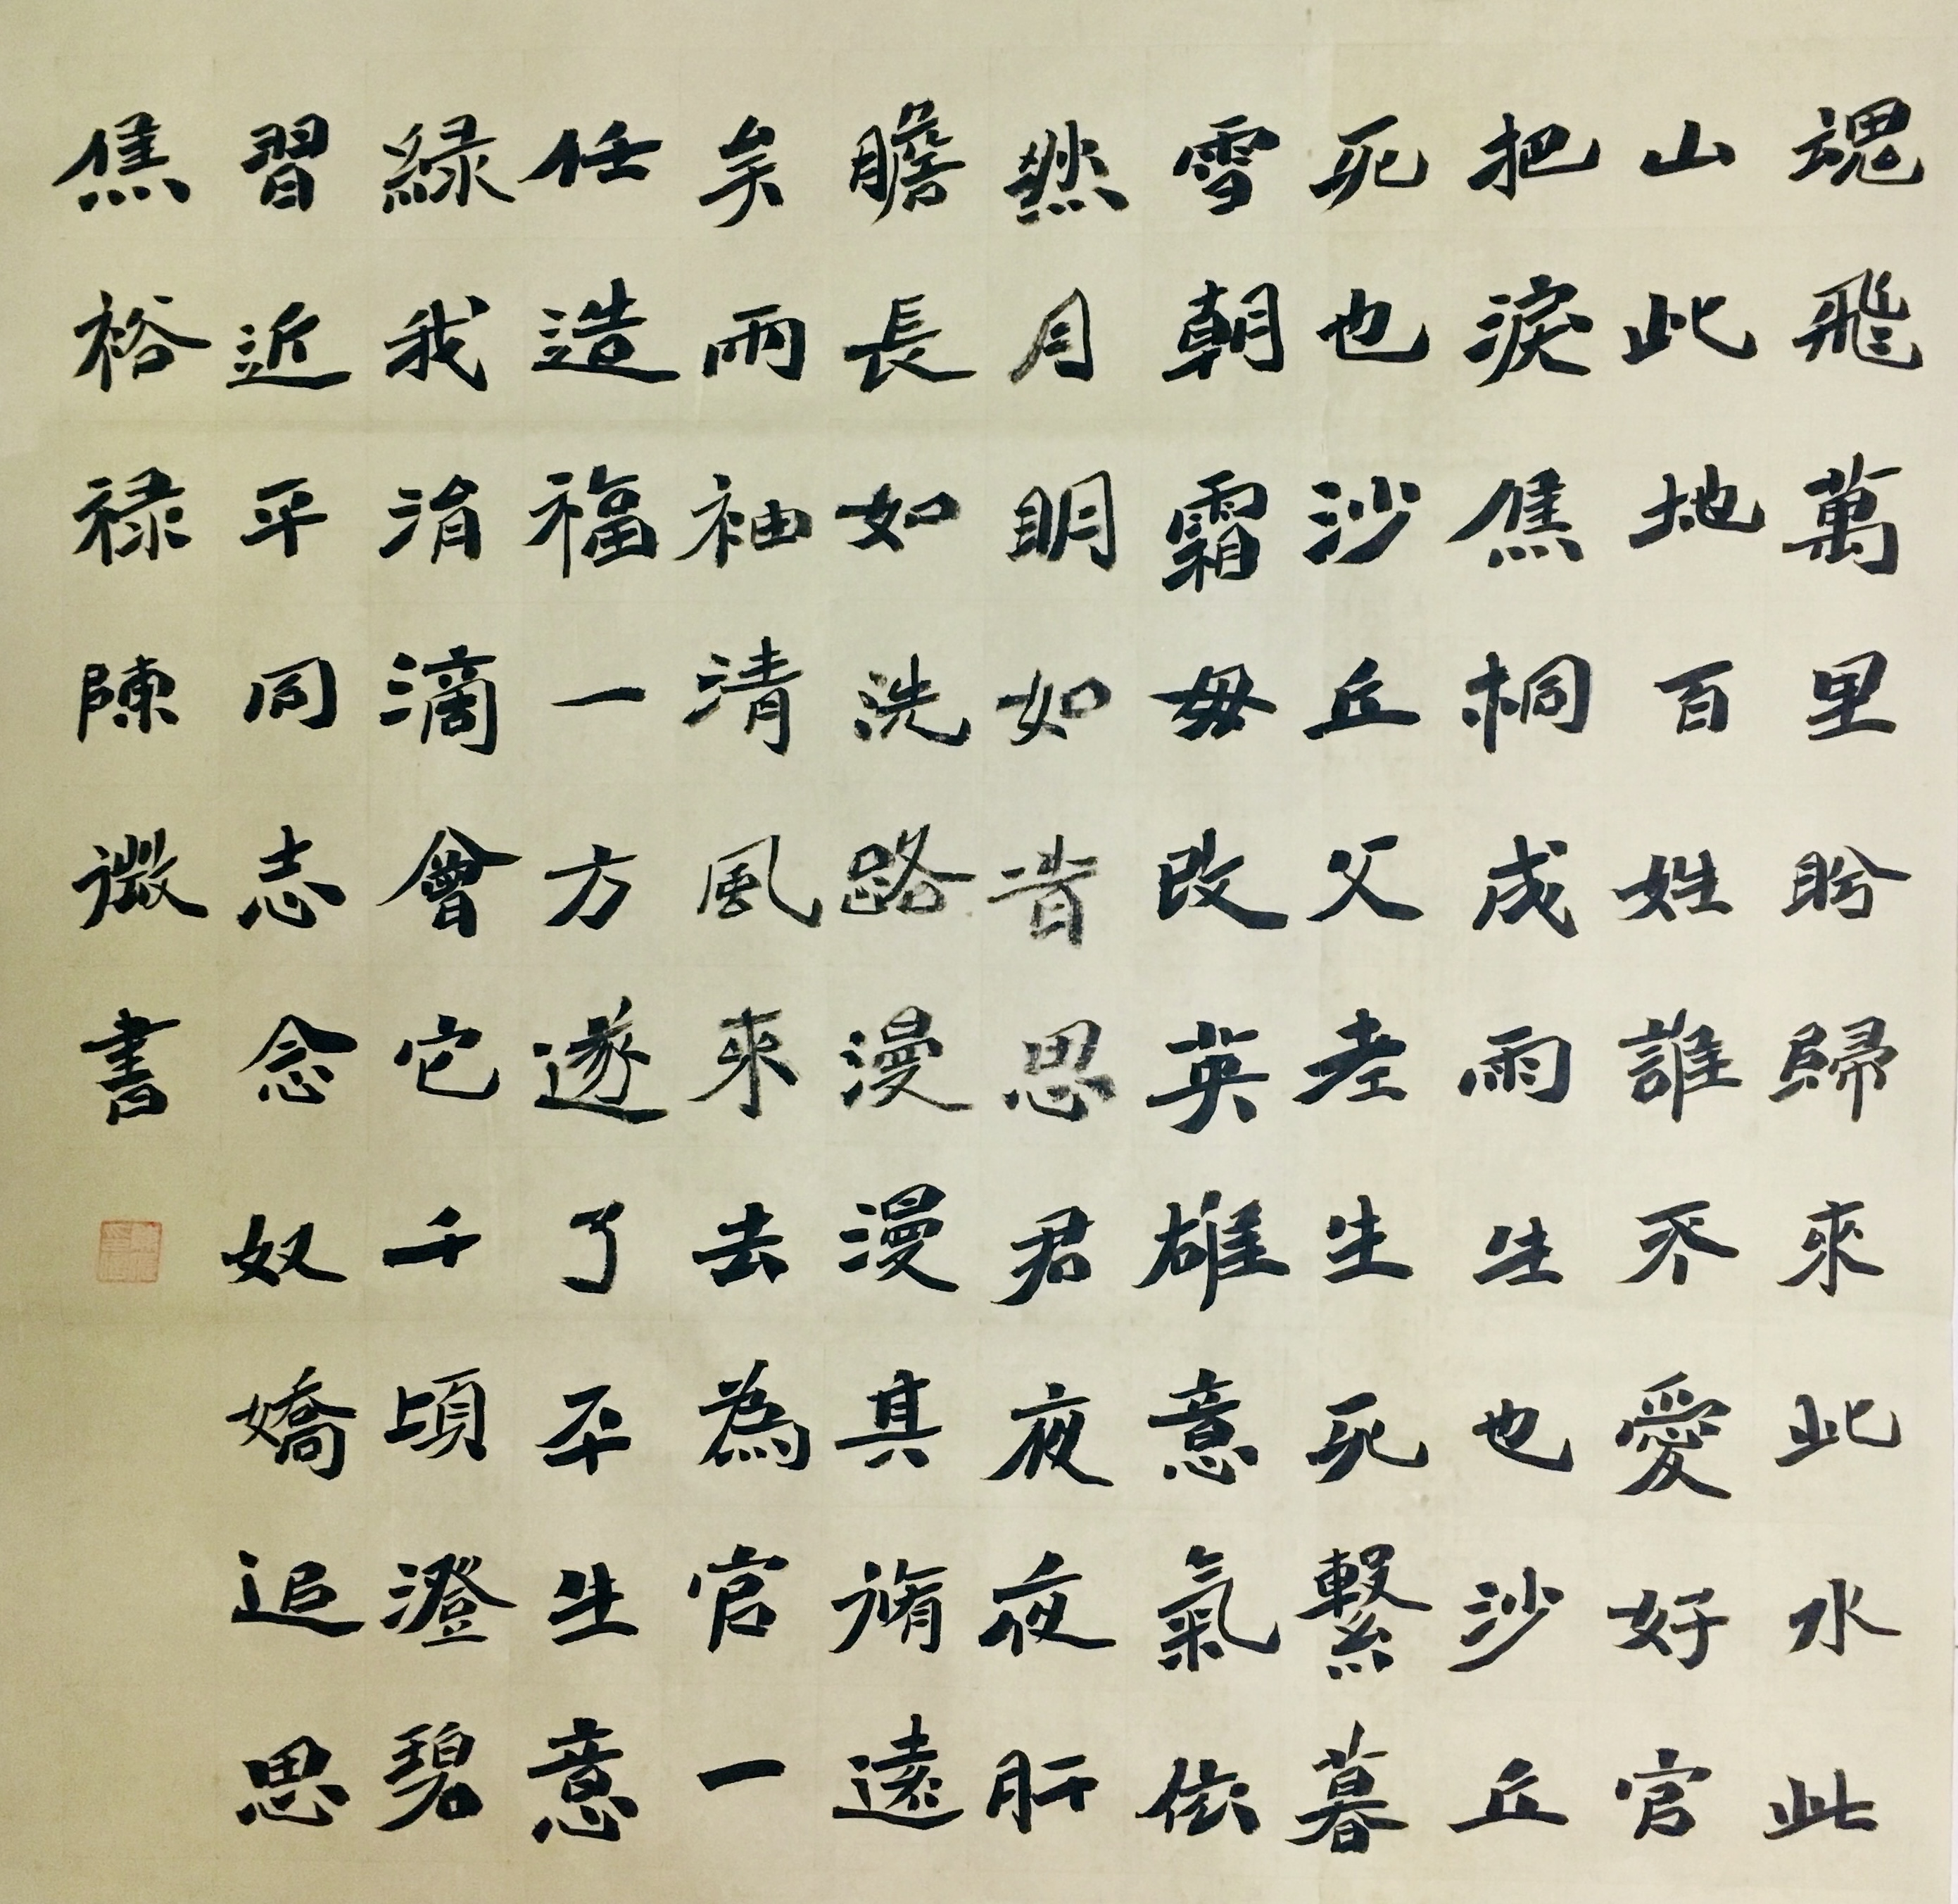 魂飛萬里盻歸來此水此
山此地百姓誰不愛好官
把淚焦桐成雨生也沙丘
死也沙丘父老生死繫暮
雪朝霜毋改英雄意氣依
然月明如昔思君夜夜肝
膽長如洗路漫漫其脩遠
矣兩袖清風來去為官一
任造福一方遂了平生意
綠我涓滴會它千頃澄碧
習近平同志念奴嬌追思
焦裕禄陳微書